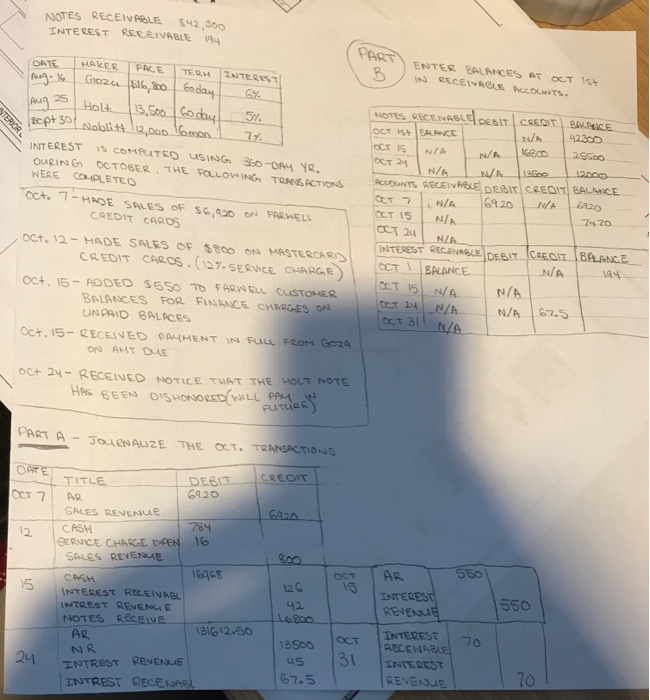 NOTES RECEIVABLE $42,300
INTEREST RECEIVABLE 194
DATE MAKER FACE TERM INTEREST
Aug. 16 Goza $16,800 60day 6%
Aug 25 Holt 13,500 60day 5%
Sept 30 Noblitt 12,000 6mon 7%
INTEREST IS COMPUTED USING 360-DAY YR.
DURING OCTOBER, THE FOLLOWING TRANSACTIONS
WERE COMPLETED
Oct. 7 - MADE SALES OF $6,920 ON FARWELL
CREDIT CARDS
Oct. 12 - MADE SALES OF $800 ON MASTERCARD
CREDIT CARDS. (12% SERVICE CHARGE)
Oct. 15 - ADDED $550 TO FARWELL CUSTOMER
BALANCES FOR FINANCE CHARGES ON
UNPAID BALACES
Oct. 15 - RECEIVED PAYMENT IN FULL FROM GOZA
ON AMT DUE
Oct 24 - RECEIVED NOTICE THAT THE HOLT NOTE
HAS BEEN DISHONORED (WILL PAY IN
FUTURE)
PART B
ENTER BALANCES AT OCT 1st
IN RECEIVABLE ACCOUNTS.
NOTES RECEIVABLE DEBIT CREDIT BALANCE
OCT 1st BALANCE N/A 42300
OCT 15 N/A N/A 16800 25500
OCT 24 N/A N/A 13500 12000
ACCOUNTS RECEIVABLE DEBIT CREDIT BALANCE
OCT 7 N/A 6920 N/A 6920
OCT 15 N/A 7470
OCT 24 N/A
INTEREST RECEIVABLE DEBIT CREDIT BALANCE
OCT 1 BALANCE N/A 194
OCT 15 N/A N/A
OCT 24 N/A N/A 67.5
OCT 31 N/A
PART A - JOURNALIZE THE OCT. TRANSACTIONS
DATE TITLE DEBIT CREDIT
OCT 7 AR 6920
SALES REVENUE 6920
12 CASH 784
SERVICE CHARGE EXPEN 16
SALES REVENUE 800
15 CASH 16968
INTEREST RECEIVABL 126
INTREST REVENUE 42
NOTES RECEIVE 16800
24 AR 131612.50
NR 13500
INTREST REVENUE 45
INTREST RECENABL 67.5
OCT 15 AR 550
INTEREST
REVENUE 550
OCT 31 INTEREST
RECENABLE 70
INTEREST
REVENUE 70